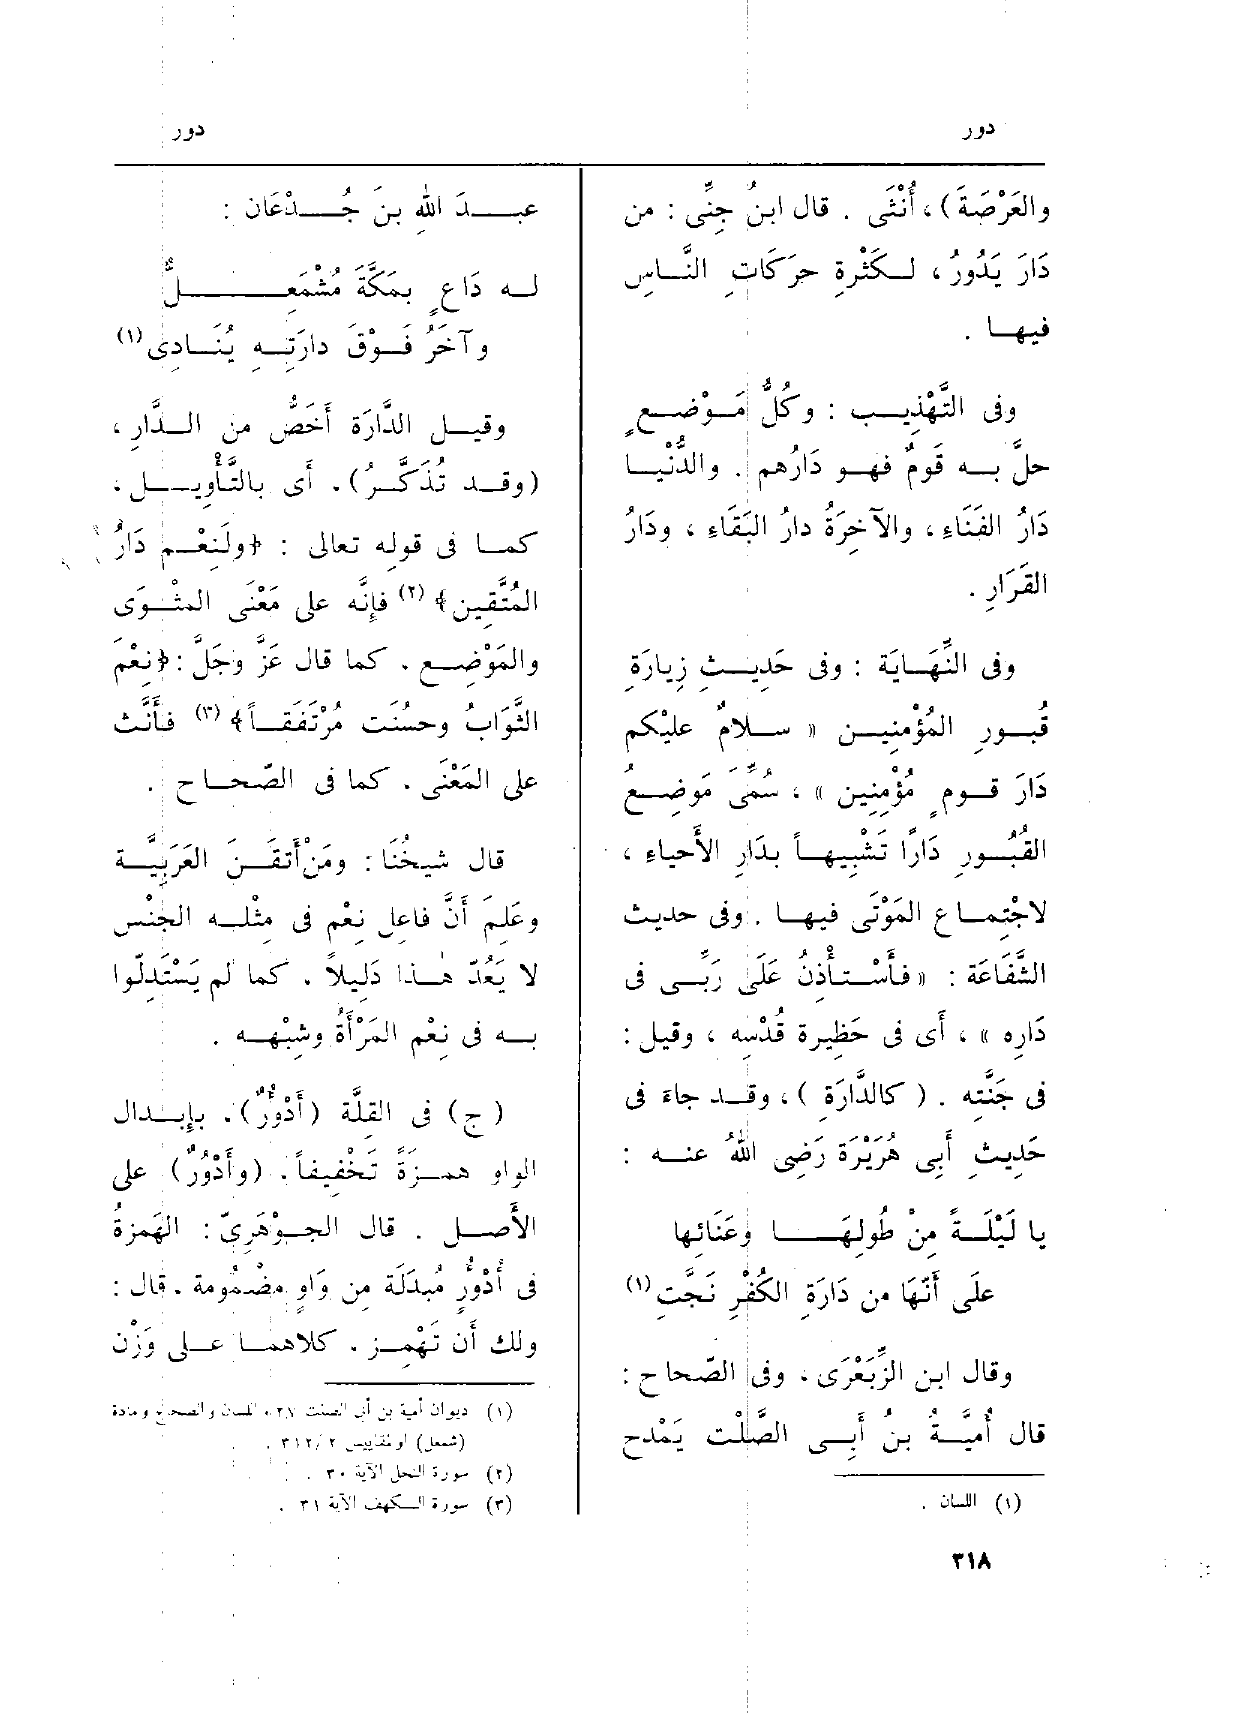 دور
دور
والعَرْصَة) ، أُنْثَى . قال ابنُ جِنِّى : من
دَارَ يَدُورُ ، لـكَثْرةِ حرَكَاتِ النَّـاسِ
فيهـا .
وفى التَّهْذِيـب : وكُلُّ مَـوْضـعٍ
حلَّ بـه قومٌ فهـو دَارُهم . والدُّنْيـا
دَارُ الفَنَاءِ ، والآخِرَةُ دارُ البَقَاءِ ، ودَارُ
القَرَارِ .
وفى النِّهَـايَة : وفى حَدِيـثِ زِيارَةِ
قُبـورِ المُؤْمنِيـن « سـلامٌ عليْكُم
دَارَ قـومٍ مُؤْمِنِين » ، سُمِّىَ مَوضِـعُ
القُبُـورِ دَارًا تَشْبِيهـاً بدَارِ الأَحياءِ ،
لاجْتِمـاعِ المَوْتَى فيهـا . وفى حديث
الشَّفَاعَة : « فأَسْتـأْذِنُ عَلَى رَبِّـى فى
دَارِه » ، أَى فى حَظِيرة قُدْسِه ، وقيل :
فى جَنَّته . ( كالدَّارَةِ ) ، وقـد جاءَ فى
حَدِيثِ أَبِى هُرَيْرَة رَضِى اللهُ عنـه :
يا لَيْلَـةً مِنْ طُولِهَـــا وعَنَائِها
علَى أَنَّهَا من دَارَةِ الكُفْرِ نَجَّتِ (١)
وقال ابن الزِّبَعْرَى ، وفى الصّحاح :
قال أُمَيَّـةُ بنُ أَبِـى الصَّلْت يَمْدح
(١) اللسان .
عبــدَ اللهِ بنَ جُــدْعَان :
لـه دَاعٍ بمَكَّةَ مُشْمَعِــــلٌّ
وآخَرُ فَـوْقَ دارَتِـه يُنَـادِى (١)
وقيـل الدَّارَة أَخَصُّ من الـدَّارِ ،
(وقـد تُذَكَّـرُ) . أَى بالتَّأْوِيـل ،
كمـا فى قوله تعالى : ﴿ولَنِعْـم دَارُ
المُتَّقِين﴾ (٢) فإِنَّه على مَعْنَى المثْـوَى
والمَوْضِـع . كما قال عَزَّ وجَلَّ : ﴿نِعْمَ
الثَّوَابُ وحسُنَت مُرْتَفَقـاً﴾ (٣) فأَنَّث
على المَعْنَى . كما فى الصّحـاح .
قال شيخُنَا : ومَنْ أَتقَـنَ العَرَبِيَّـة
وعَلِمَ أَنَّ فاعِل نِعْم فى مِثْلـه الجِنْس
لا يَعُدّ هـذا دَلِيلاً . كما لم يَسْتَدِلّوا
بـه فى نِعْم المَرْأَةُ وشِبْهِـه .
(ج) فى القلَّة (أَدْؤُرٌ) . بإِبـدال
الواو همـزَةً تَخْفيفاً . (وأَدْوُرٌ) على
الأَصـل . قال الجـوْهَرِىّ : الهَمزةُ
فى أَدْؤُرٍ مُبدَلَة من وَاوٍ مضْمُومة . قال :
ولك أَن تَهْمِـز . كلاهمـا علـى وَزْن
(١) ديوان أمية بن أبى الصلت ٢٧، اللسان والصحاح ومادة
(شمعل) والمقاييس ٣١٢/٢ .
(٢) سورة النحل الآية ٣٠ .
(٣) سورة الـكهف الآية ٣١ .
٣١٨